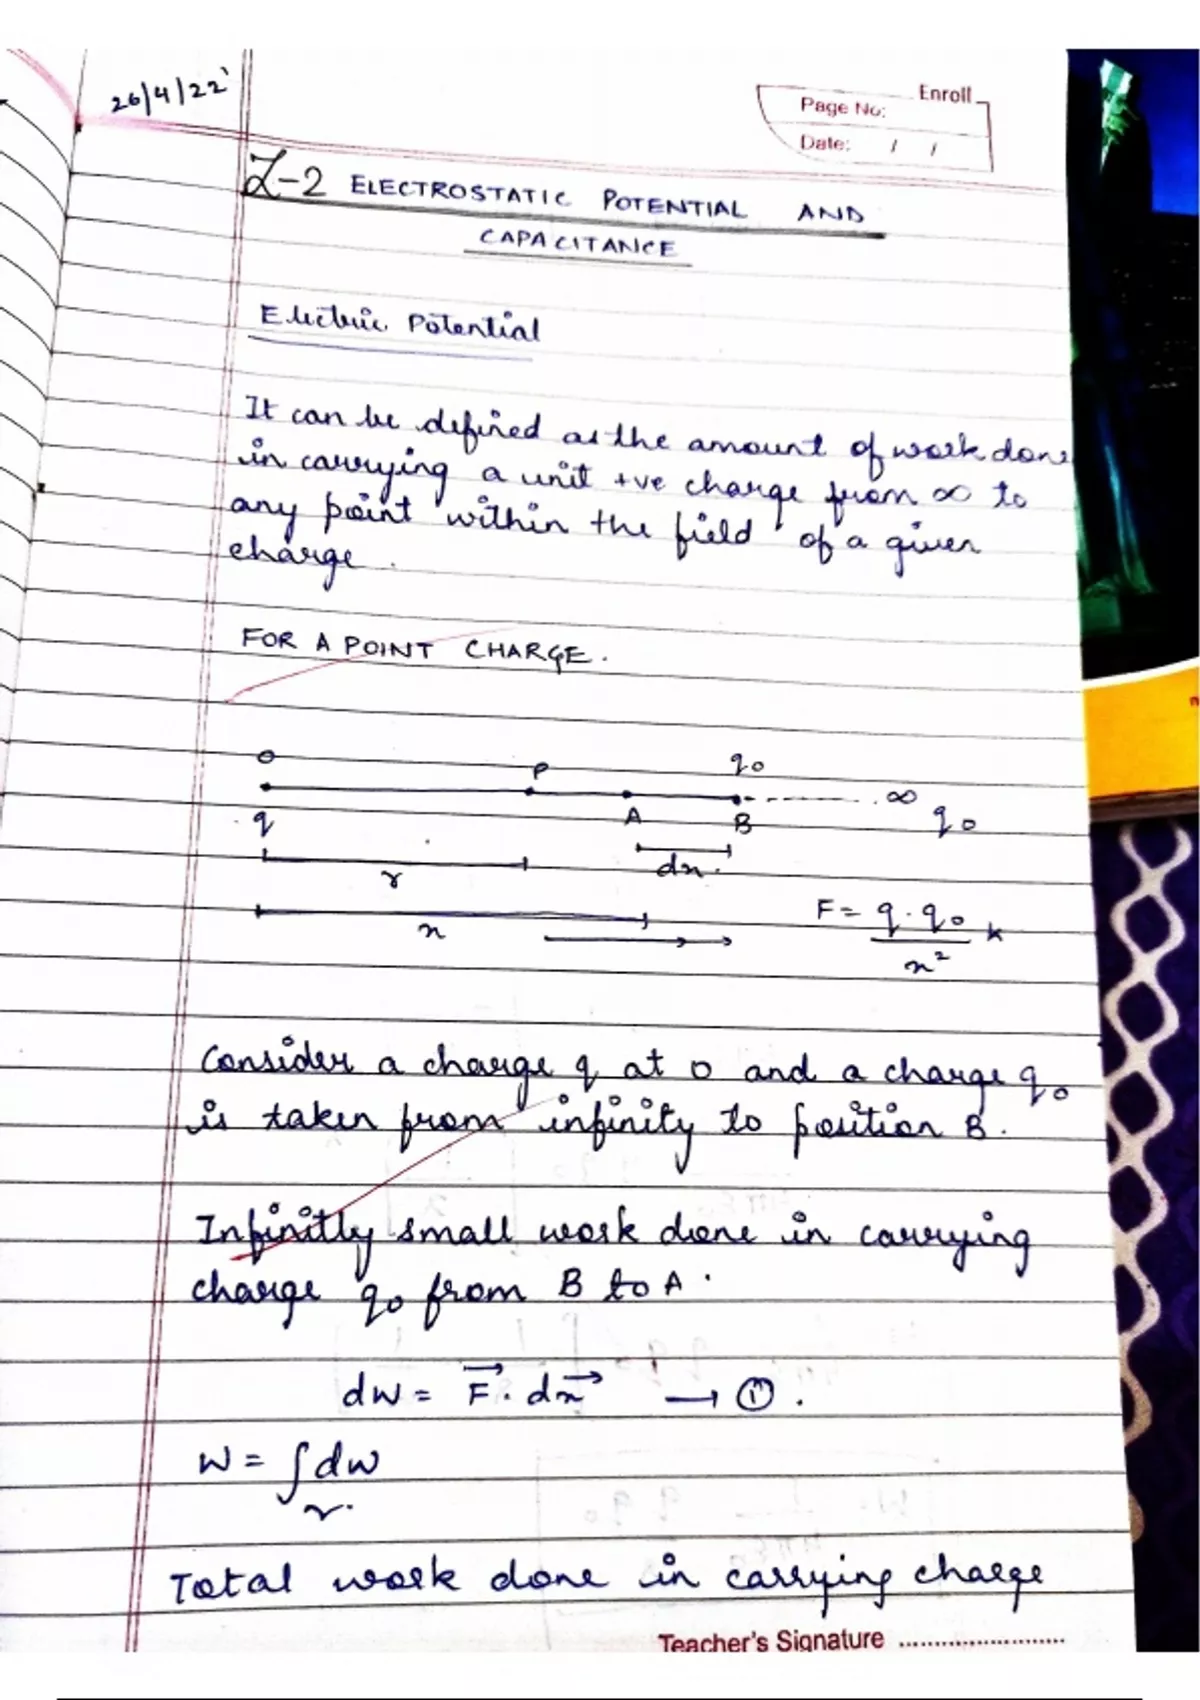 26/4/22
Enroll
Page No:
Date: / /
L-2 ELECTROSTATIC POTENTIAL AND
CAPACITANCE
Electric Potential
It can be defined as the amount of work done
in carrying a unit +ve charge from ∞ to
any point within the field of a given
charge.
FOR A POINT CHARGE.
O P q₀
∞
q A B q₀
dx.
r
F = q.q₀ k
x²
x
Consider a charge q at O and a charge q₀
is taken from infinity to position B.
Infinitly small work done in carrying
charge q₀ from B to A.
dW = F⃗. dx⃗ → ①.
W = ∫dW
r.
Total work done in carrying charge
Teacher's Signature ........................